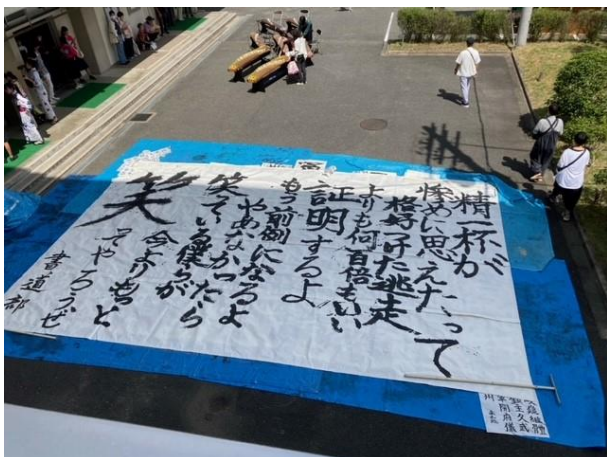 精一杯が
惨めに思えたって
格好つけた逃走
よりも何百倍もいい
証明するよ
もう前例になるよ
やめなかったら
笑っている僕らが
今よりもっと
笑ってやろうぜ
書道部